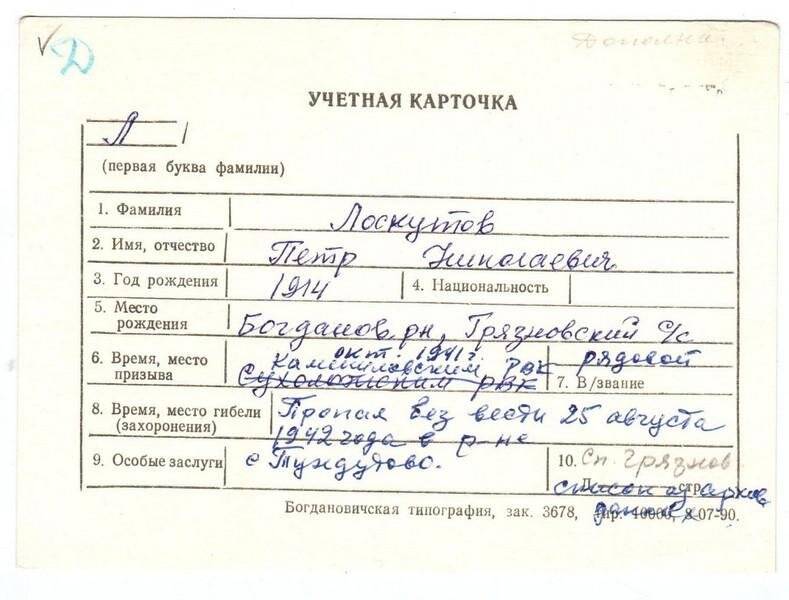 √ Д
Дополна
УЧЕТНАЯ КАРТОЧКА
Л
(первая буква фамилии)
1. Фамилия Лоскутов
2. Имя, отчество Петр Николаевич
3. Год рождения 1914 4. Национальность
5. Место рождения Богданов. рн, Грязновский с/с
6. Время, место призыва окт. 1941г.
Камышловским РВК
Сухоложским РВК
рядовой
7. В/звание
8. Время, место гибели (захоронения) Пропал без вести 25 августа
1942 года в р-не
9. Особые заслуги с Тундутово.
10. Сп. Грязнов
список из архив
данных
Богдановичская типография, зак. 3678, тир. 10000, 8.07-90.